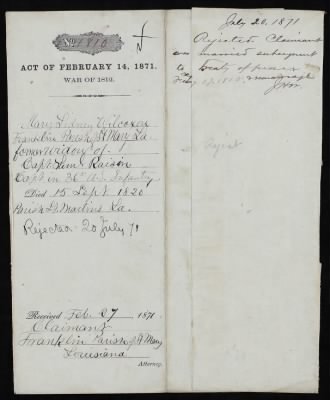 No. 1810
ACT OF FEBRUARY 14, 1871.
WAR OF 1812.
Mary Sidney Wilcoxon
Franklin Parish St Mary La.
former widow of
Capt. Raison
Capt in 36th U.S. Infantry
Died 15 Sept 1820
Parish St Martins La.
Rejected 20 July 71
Received Feb. 27 1871.
Claimant
Franklin Parish St Mary
Louisiana
Attorney.
July 20, 1871
Rejected Claimant
married subsequent
to treaty of peace
Reject